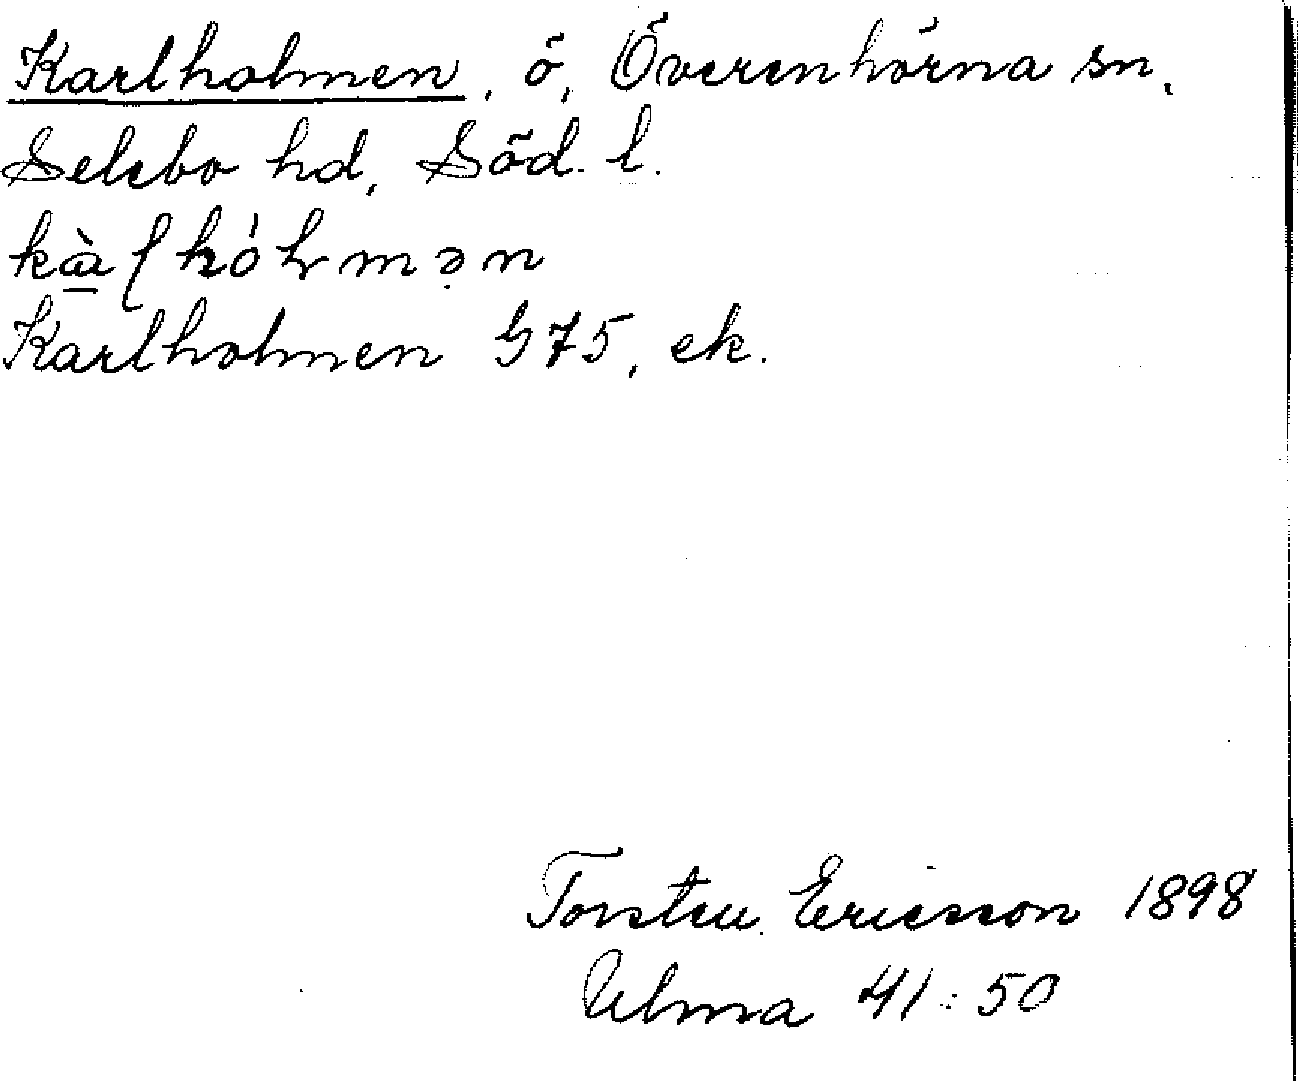 Karlholmen, ö, Överenhörna sn,
Selebo hd, Söd. l.
Karlholmen G75, ek.
Torsten Ericsson 1898
Ulma 41:50